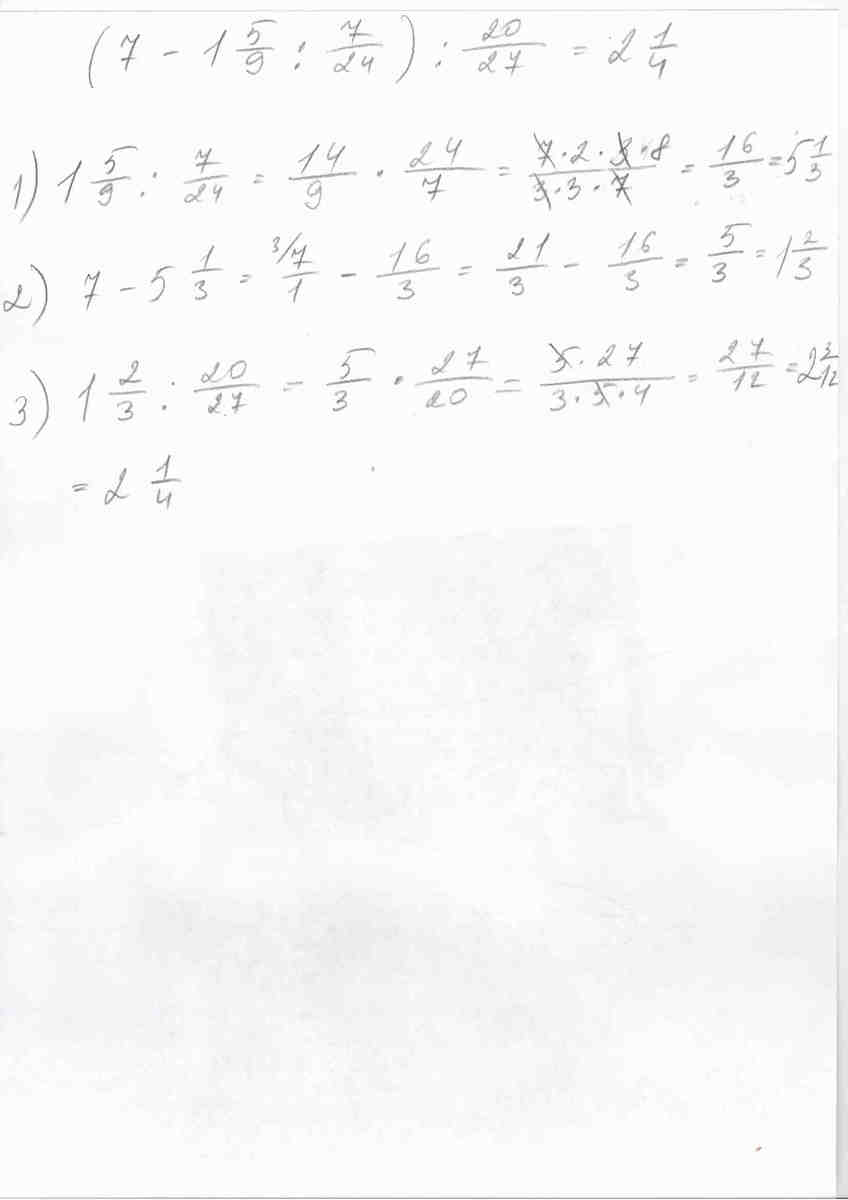 (7 - 1 5/9 : 7/24) : 20/27 = 2 1/4
1) 1 5/9 : 7/24 = 14/9 · 24/7 = 7·2·3·8/3·3·7 = 16/3 = 5 1/3
2) 7 - 5 1/3 = 3/ 7/1 - 16/3 = 21/3 - 16/3 = 5/3 = 1 2/3
3) 1 2/3 : 20/27 = 5/3 · 27/20 = 5·27/3·5·4 = 27/12 = 2 3/12
= 2 1/4